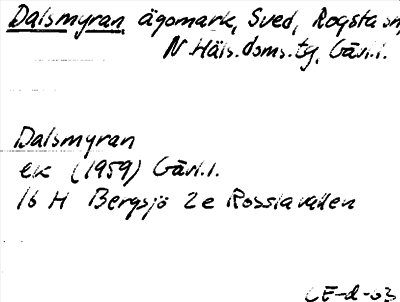 Dalsmyran ägomark, Sved, Rogsta sn,
N. Häls. doms. tg, Gävl. l.
Dalsmyran
ek (1959) Gävl. l.
16 H Bergsjö 2e Rosslavallen
CE-d-63